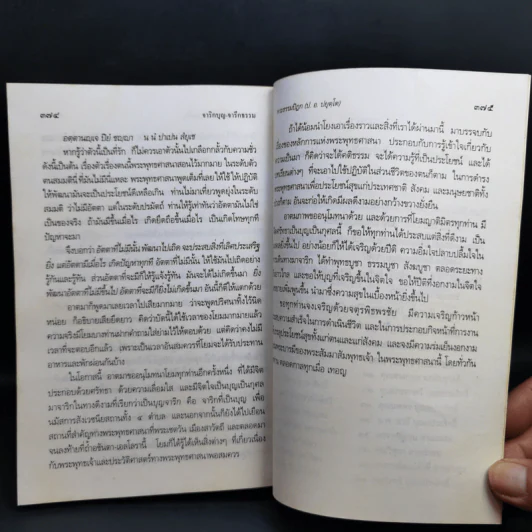 ๓๗๔ จาริกบุญ-จารึกธรรม
อตฺตานญฺเจ ปิยํ ชญฺญา น นํ ปาเปน สํยุเช
หากรู้ว่าตัวนี้เป็นที่รัก ก็ไม่ควรเอาตัวนั้นไปเกลือกกลั้วกับความชั่ว
ดังนี้เป็นต้น เรื่องตัวเรื่องตนนี้พระพุทธศาสนาสอนไว้มากมาย ในระดับตัว
ตนสมมตินี่ ที่มันไม่มีนี่แหละ พระพุทธศาสนาพูดเต็มที่เลยให้ใช้ ให้ปฏิบัติ
ให้พัฒนามันจะเป็นประโยชน์ดีเหลือเกิน ท่านไม่มาเที่ยวพูดยุ่งในระดับ
สมมติ ว่าไม่มีอัตตา แต่ในระดับปรมัตถ์ ท่านให้รู้เท่าทันว่าอัตตามันไม่ใช่
เป็นของจริง ถ้ามันมีขึ้นเมื่อไร เกิดยึดถือขึ้นเมื่อไร เป็นเกิดโทษทุกที
ปัญหาจะมา
จึงบอกว่า อัตตาที่ไม่มีนั้นพัฒนาไปเถิด จะประสบสิ่งที่เลิศประเสริฐ
ยิ่ง แต่อัตตามีเมื่อไร เกิดปัญหาทุกที อัตตาที่ไม่มีนั้น ให้ใช้มันไปเถิดอย่าง
รู้กันและรู้ทัน ส่วนอัตตาที่จะมีก็ให้รู้แจ้งรู้ทัน มันจะได้ไม่เกิดขึ้นมา ยิ่ง
พัฒนาอัตตาที่ไม่มีขึ้นไป อัตตาที่จะมี ก็ยิ่งไม่เกิดขึ้นมา อันนี้ก็ดีให้แตกด้วย
อาตมาก็พูดมาเลยเวลาไปเสียมากมาย ว่าจะพูดปริศนาทิ้งไว้นิด
หน่อย ก็อธิบายเสียยืดยาว คิดว่าบัดนี้ได้ใช้เวลาของโยมมากมายแล้ว
ความจริงมีโยมบางท่านฝากคำถามใส่ย่ามไว้ให้ตอบด้วย แต่คิดว่าคงไม่มี
เวลาที่จะตอบอีกแล้ว เพราะเป็นเวลาอันสมควรที่โยมจะได้รับประทาน
อาหารและพักผ่อนกันบ้าง
ในโอกาสนี้ อาตมาขออนุโมทนาโยมทุกท่านอีกครั้งหนึ่ง ที่ได้มีจิต
ประกอบด้วยศรัทธา ด้วยความเลื่อมใส และมีจิตใจเป็นบุญเป็นกุศล
มาจาริกในทางดีงามที่เรียกว่าเป็นบุญจาริก คือ จาริกที่เป็นบุญ เพื่อ
นมัสการสังเวชนียสถานทั้ง ๔ ตำบล และนอกจากนั้นก็ยังได้ไปเยือน
สถานที่สำคัญทางพระพุทธศาสนาที่พระเชตวัน เมืองสาวัตถี และตลอดมา
จนลงท้ายที่ถ้ำอชันตา-เอลโลรานี้ โยมก็ได้รู้ได้เห็นสิ่งต่างๆ ที่เกี่ยวเนื่อง
กับพระพุทธเจ้าและประวัติศาสตร์ทางพระพุทธศาสนาพอสมควร
พระธรรมปิฎก (ป. อ. ปยุตฺโต) ๓๗๕
ถ้าได้น้อมนำโยงเอาเรื่องราวและสิ่งที่เราได้ผ่านมานี้ มาบรรจบกับ
เรื่องของหลักการแห่งพระพุทธศาสนา ประกอบกับการรู้เข้าใจเกี่ยวกับ
ความเป็นมา ก็คิดว่าจะได้คติธรรม จะได้ความรู้ที่เป็นประโยชน์ และได้
บทเรียนต่างๆ ที่จะเอาไปใช้ปฏิบัติในส่วนชีวิตของตนก็ตาม ในการดำรง
พระพุทธศาสนาเพื่อประโยชน์สุขแก่ประเทศชาติ สังคม และมนุษยชาติทั้ง
ก็ตาม อันจะก่อให้เกิดมีผลดีงามอย่างกว้างขวางยั่งยืน
อาตมภาพขออนุโมทนาด้วย และด้วยการที่โยมญาติมิตรทุกท่าน มี
จิตศรัทธาเป็นบุญเป็นกุศลนี้ ก็ขอให้ทุกท่านได้ประสบแต่สิ่งที่ดีงาม เป็น
ยิ่งขึ้นไป อย่างน้อยก็ให้ได้เจริญด้วยปีติ ความอิ่มใจปลาบปลื้มใจใน
เส้นทางมาจาริก ได้ทำพุทธบูชา ธรรมบูชา สังฆบูชา ตลอดระยะทาง
และขอให้บุญที่เจริญขึ้นในจิตใจ ขอให้ปีติที่งอกงามในจิตใจ
เพิ่มพูนขึ้น นำมาซึ่งความสุขในเบื้องหน้ายิ่งขึ้นไป
ขอทุกท่านจงเจริญด้วยจตุรพิธพรชัย มีความเจริญก้าวหน้า
ความสำเร็จในการดำเนินชีวิต และในการประกอบกิจหน้าที่การงาน
ประโยชน์สุขทั้งแก่ตนและแก่สังคม และจงมีความร่มเย็นงอกงาม
พระธรรมของพระสัมมาสัมพุทธเจ้า ในพระพุทธศาสนานี้ โดยทั่วกัน
ตลอดกาลทุกเมื่อ เทอญ